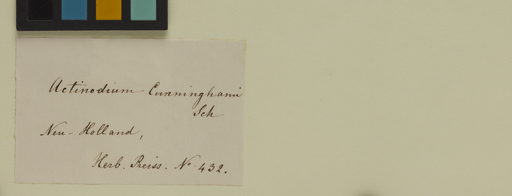 Actinodium Cunninghami
Sch
Neu-Holland,
Herb. Preiss. No 432.